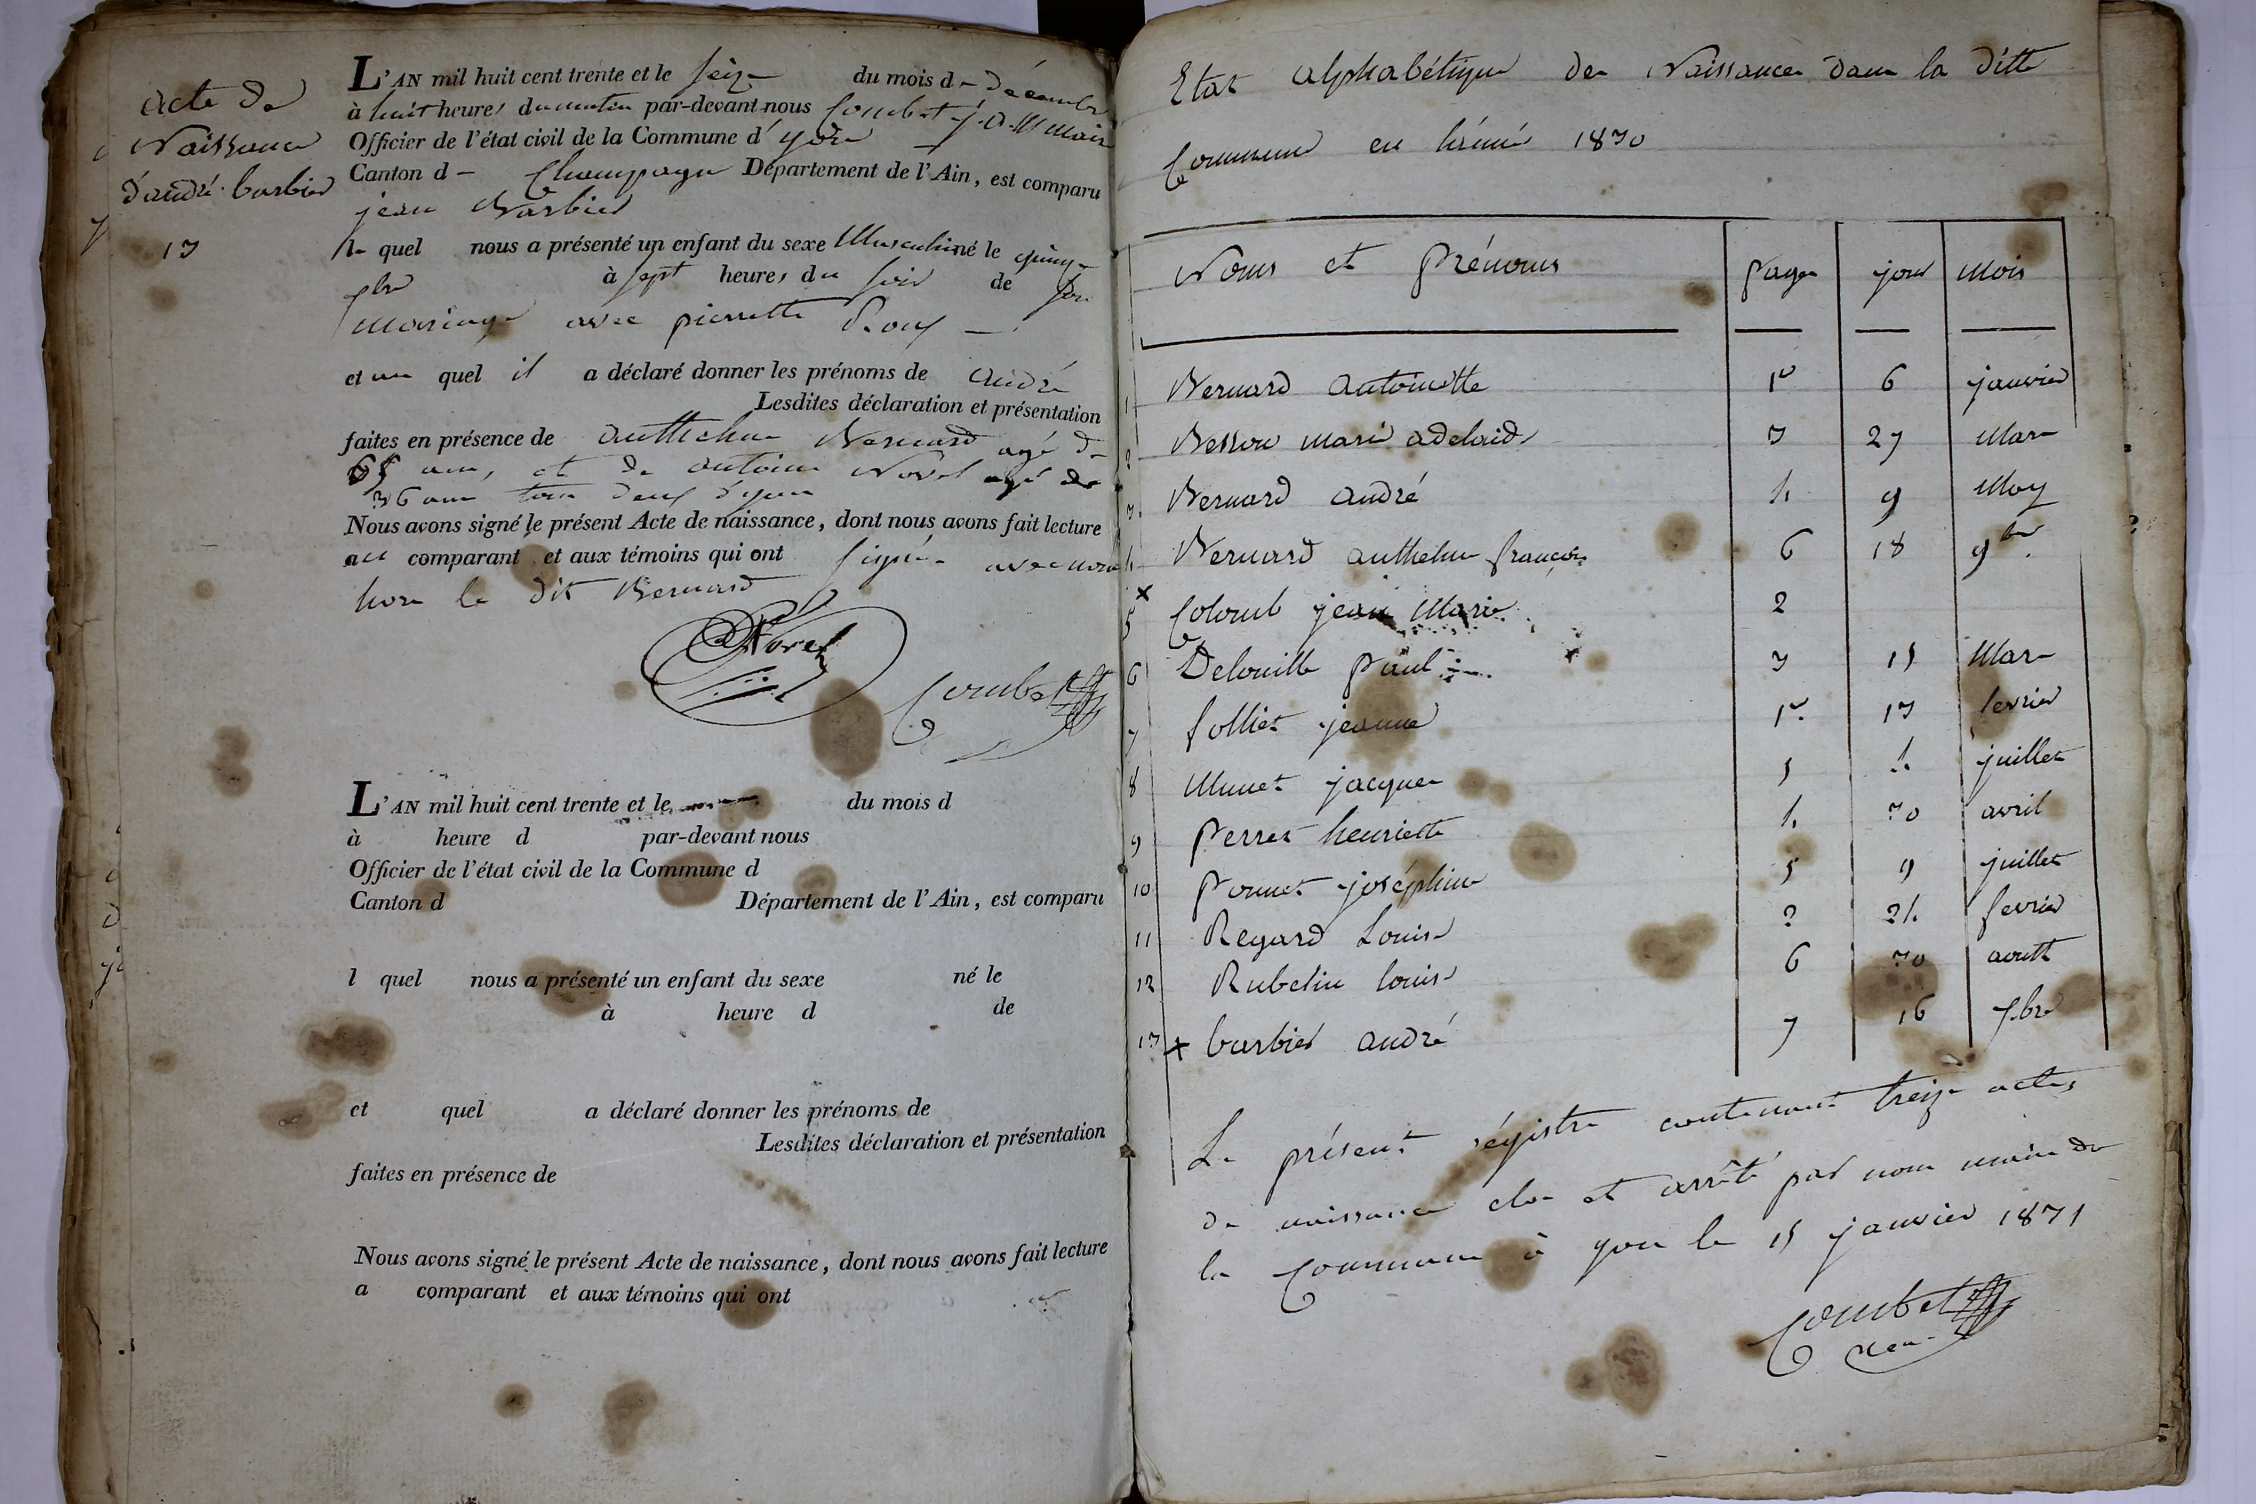 acte de
Naissance
d'andré barbier
13
L'AN mil huit cent trente et le seize du mois de décembre
à huit heures du matin par-devant nous Combet j. a. M maire
Officier de l'état civil de la Commune d'yon
Canton d Champagne Département de l'Ain, est comparu
jean Barbier
le quel nous a présenté un enfant du sexe Masculin né le quinze
à sept heures du soir de son
Mariage avec pierrette Roux
et au quel il a déclaré donner les prénoms de andré
Lesdites déclaration et présentation
faites en présence de anthelme Bernard agé de
65 ans, et de antoine Novel agé de
36 ans tous deux d'yon
Nous avons signé le présent Acte de naissance, dont nous avons fait lecture
au comparant et aux témoins qui ont signé avec nous
hors le dit Bernard
Novel
Combet
L'AN mil huit cent trente et le du mois d
à heure d par-devant nous
Officier de l'état civil de la Commune d
Canton d Département de l'Ain, est comparu
l quel nous a présenté un enfant du sexe né le
à heure d de
et quel a déclaré donner les prénoms de
Lesdites déclaration et présentation
faites en présence de
Nous avons signé le présent Acte de naissance, dont nous avons fait lecture
a comparant et aux témoins qui ont
Etat alphabétique des Naissances dans la ditte
Commune en 1830
Noms et Prénoms Page jour Mois
1 Bernard antoinette 1re 6 janvier
2 Besson marie adelaide 3 27 Mars
3 Bernard andré 4 9 May
4 Bernard anthelme françois 6 18 9bre
5 Colomb jean Marie 2
6 Delouille Paul 3 15 Mars
7 folliet jeanne 1re 13 fevrier
8 Munet jacques 5 4 juillet
9 Perret henriette 4 30 avril
10 Ponnet joséphine 5 9 juillet
11 Regard Louise 2 24 fevrier
12 Rubelin louise 6 30 aoutt
13 barbier andré 7 16 Xbre
Le présent régistre contenant treize actes
de naissance clos et arrêté par nous maire de
la Commune à yon le 15 janvier 1831
Combet